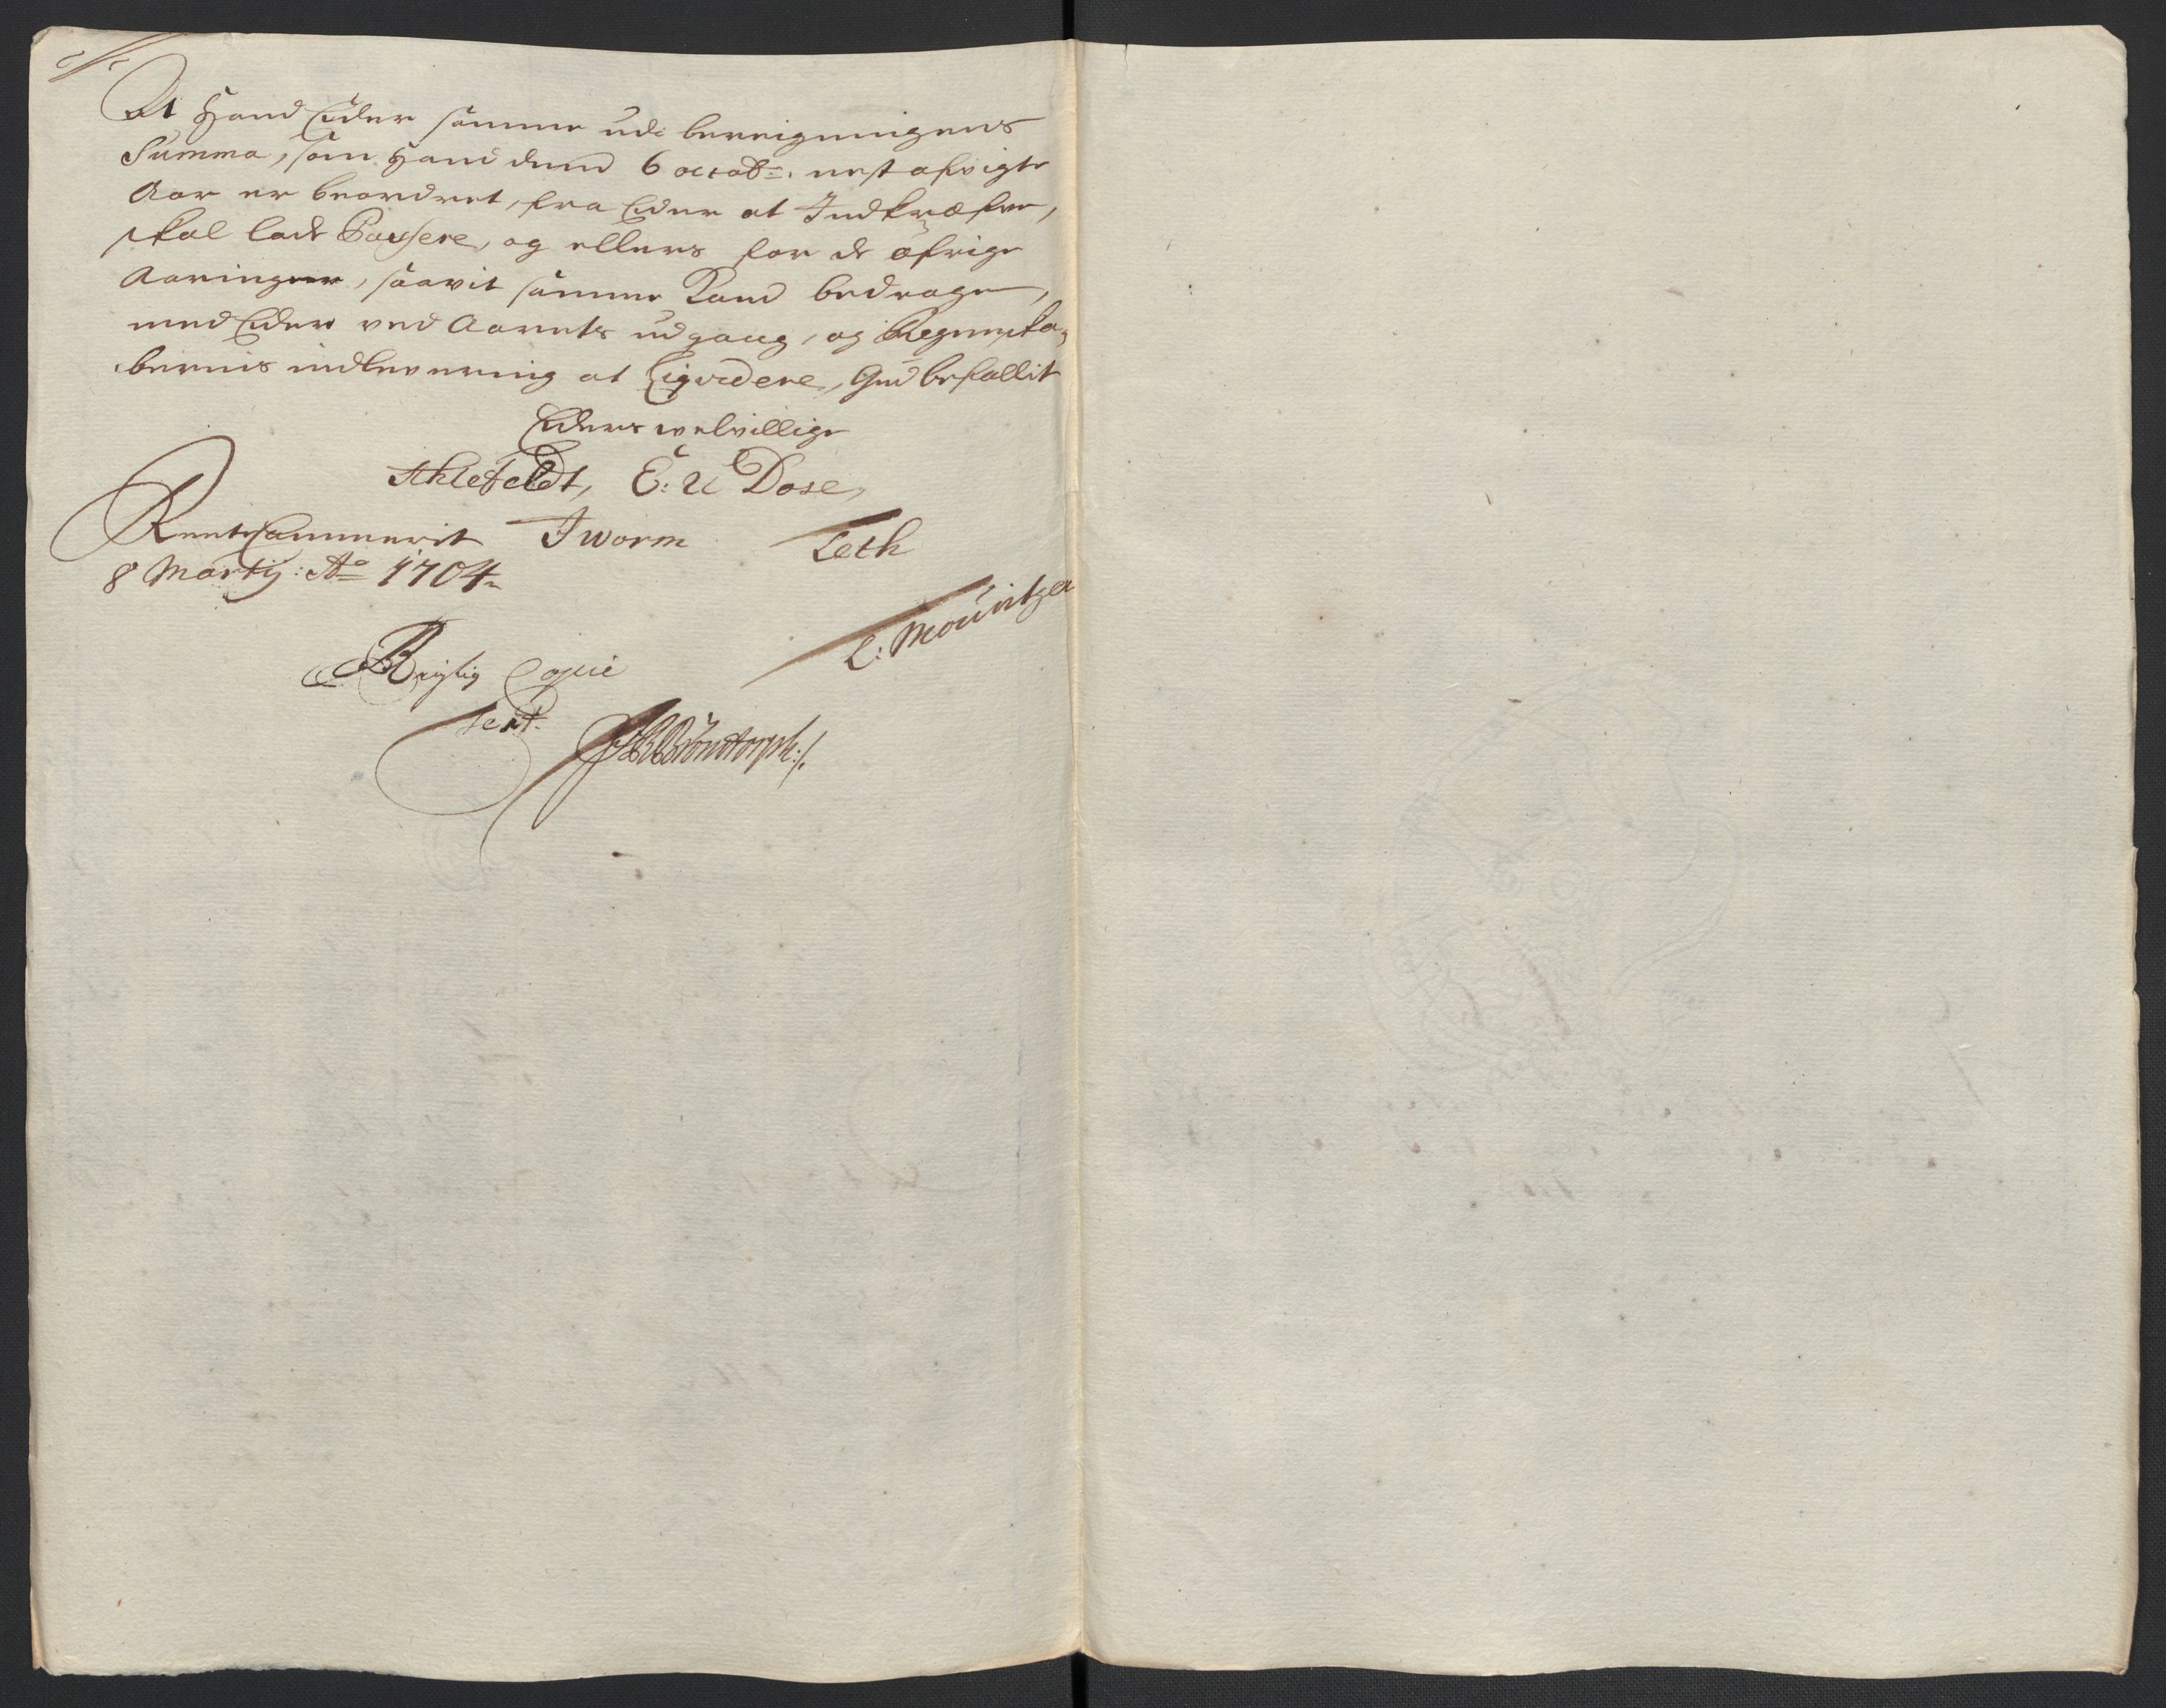 At Hand Eider samme udi bereigningens
Summa, som Hand dend 6 octobr: nest afvigte
Aar er beordret, fra Eider at Indkræfve,
skal lade Passere, og ellers for de øfrige
Aaringer, saavit samme Kand bedrage,
med Eider ved Aarets udgang, og Regenska-
bernis indlevering at Liqvidere, Gud befallit
Eiders velvillige
Ahlefeldt, C: U Dose,
Rentecammerit IWorm Leth
8 Martij: Ao 1704
C: Mouritzen
Rigtig Copie
Test.